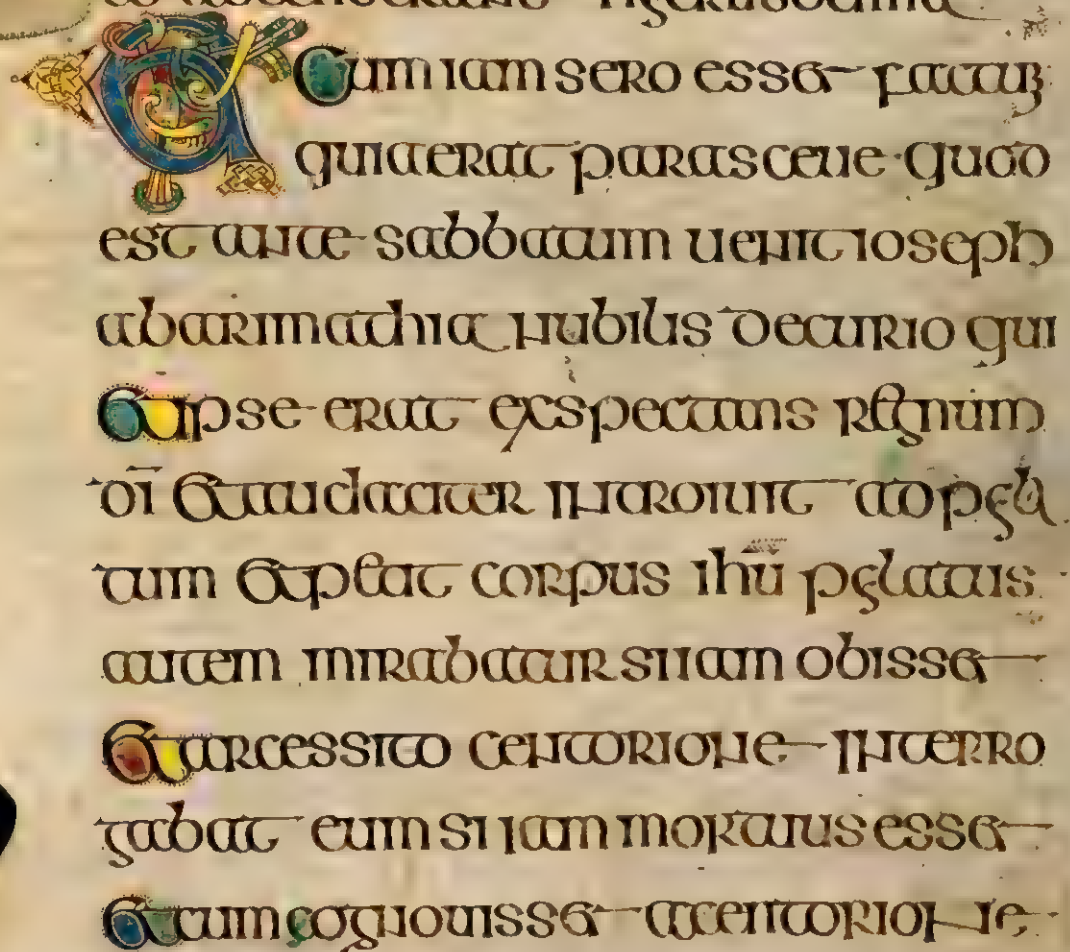 Et Cum iam sero esset factum
quia erat parasceue · quod
est ante sabbatum uenit ioseph
ab arimathia nubilis decurio qui
Et ipse erat exspectans regnum
dī Et audaciter introiuit ad pila
tum Et petat corpus ihū pilatus
autem mirabatur si iam obisset
Et arcessito centorione interro
gabat eum si iam mortuus esset
Et cum cognouisset a centorione